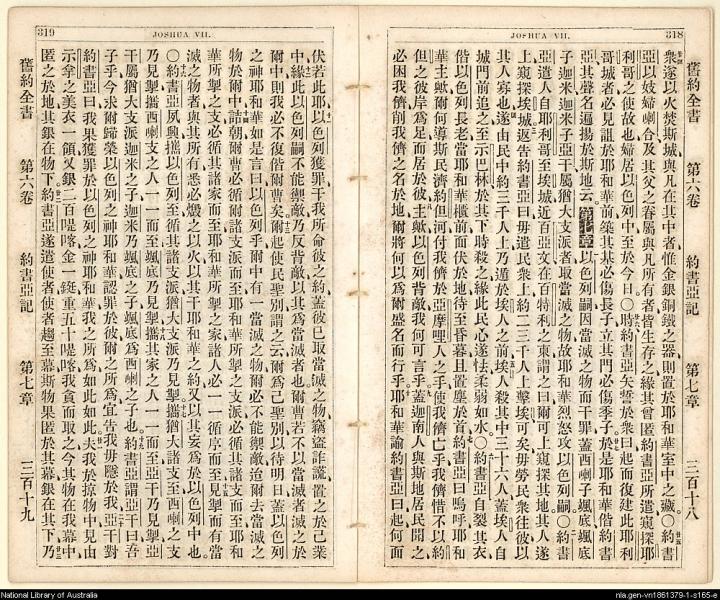 318
JOSHUA VII.
舊約全書 第六卷 約書亞記 第七章 三百十八
衆遂以火焚斯城與凡在其中者惟金銀銅鐵之器則置於耶和華室中之藏○約書
亞以妓婦喇合及其父之眷屬與凡所有者皆生存之緣其曾匿約書亞所遣窺探耶
利哥之使故也婦居以色列中至於今日○時約書亞矢誓於衆曰起而復建此耶利
哥城者必見詛於耶和華前築其基必傷長子立其門必傷季子於是耶和華偕約書
亞其聲名遍揚於斯地云第七章以色列嗣因當滅之物而干罪蓋西喇子颯底颯底
子迦米迦米子亞干屬猶大支派者取當滅之物故耶和華烈怒攻以色列嗣○約書
亞遣人自耶利哥至埃城近百亞文在百特利之東謂之曰爾可上窺探其地其人遂
上窺探埃城返告約書亞曰毋遣民衆上約二三千人上擊埃可矣毋勞民衆往彼以
其人寡也遂由民中約三千人上乃遁於埃人之前埃人殺其中三十六人蓋埃人自
城門前追之至示巴林於其下時殺之緣此民心遂怯柔弱如水○約書亞自裂其衣
偕以色列長老當耶和華櫃前而伏於地待至昏暮且置塵於首約書亞曰嗚呼耶和
華主歟爾何導斯民濟約但河付我儕於亞摩哩人之手使我儕亡乎我儕惜不以約
但之彼岸爲足而居於彼主歟以色列背敵我何可言乎蓋迦南人與斯地居民聞之
必困我儕削我儕之名於地爾將何以爲爾盛名而行乎耶和華諭約書亞曰起何而
319
JOSHUA VII.
伏若此耶以色列獲罪干我所命彼之約蓋彼已取當滅之物竊盜詐謊置之於己業
中緣此以色列嗣不能禦敵乃反背敵以其爲當滅者也爾曹若不以當滅者滅之於
爾中間則我必不復偕爾曹矣爾起使民聖別謂之云爾爲己聖別以待明日蓋以色列
之神耶和華如是言曰以色列乎爾中有一當滅之物爾必不能禦敵迨爾去當滅之
物於爾中詰朝爾曹必循爾諸支派而至耶和華所掣之支派必循其諸支而至耶和
華所掣之支必循其諸家而至耶和華所掣之家諸人必一一循序而至見掣而有當
滅之物者與其所有悉必燬之以火以其干耶和華之約又以其妄爲於以色列中也
○約書亞夙興攜以色列至循其諸支派猶大支派乃見掣攜猶大諸支至西喇之支
乃見掣攜西喇支之人一一而至颯底乃見掣攜其家之人一一而至亞干乃見掣亞
干屬猶大支派迦米之子迦米乃颯底之子颯底爲西喇之子也約書亞謂亞干曰吾
子乎今求爾歸榮以色列之神耶和華認罪於彼爾之所爲宜告我毋隱於我亞干對
約書亞曰我果獲罪於以色列之神耶和華我之所爲如此如此夫我於掠物中見由
示拿之美衣一領又銀二百㖷喀金一鋌重五十㖷喀我貪而取之今其物在我幕中
匿之於地其銀在物下約書亞遂遣使者使者趨至幕斯物果匿於其幕銀在其下乃
舊約全書 第六卷 約書亞記 第七章 三百十九
National Library of Australia
nla.gen-vn1861379-1-s165-e